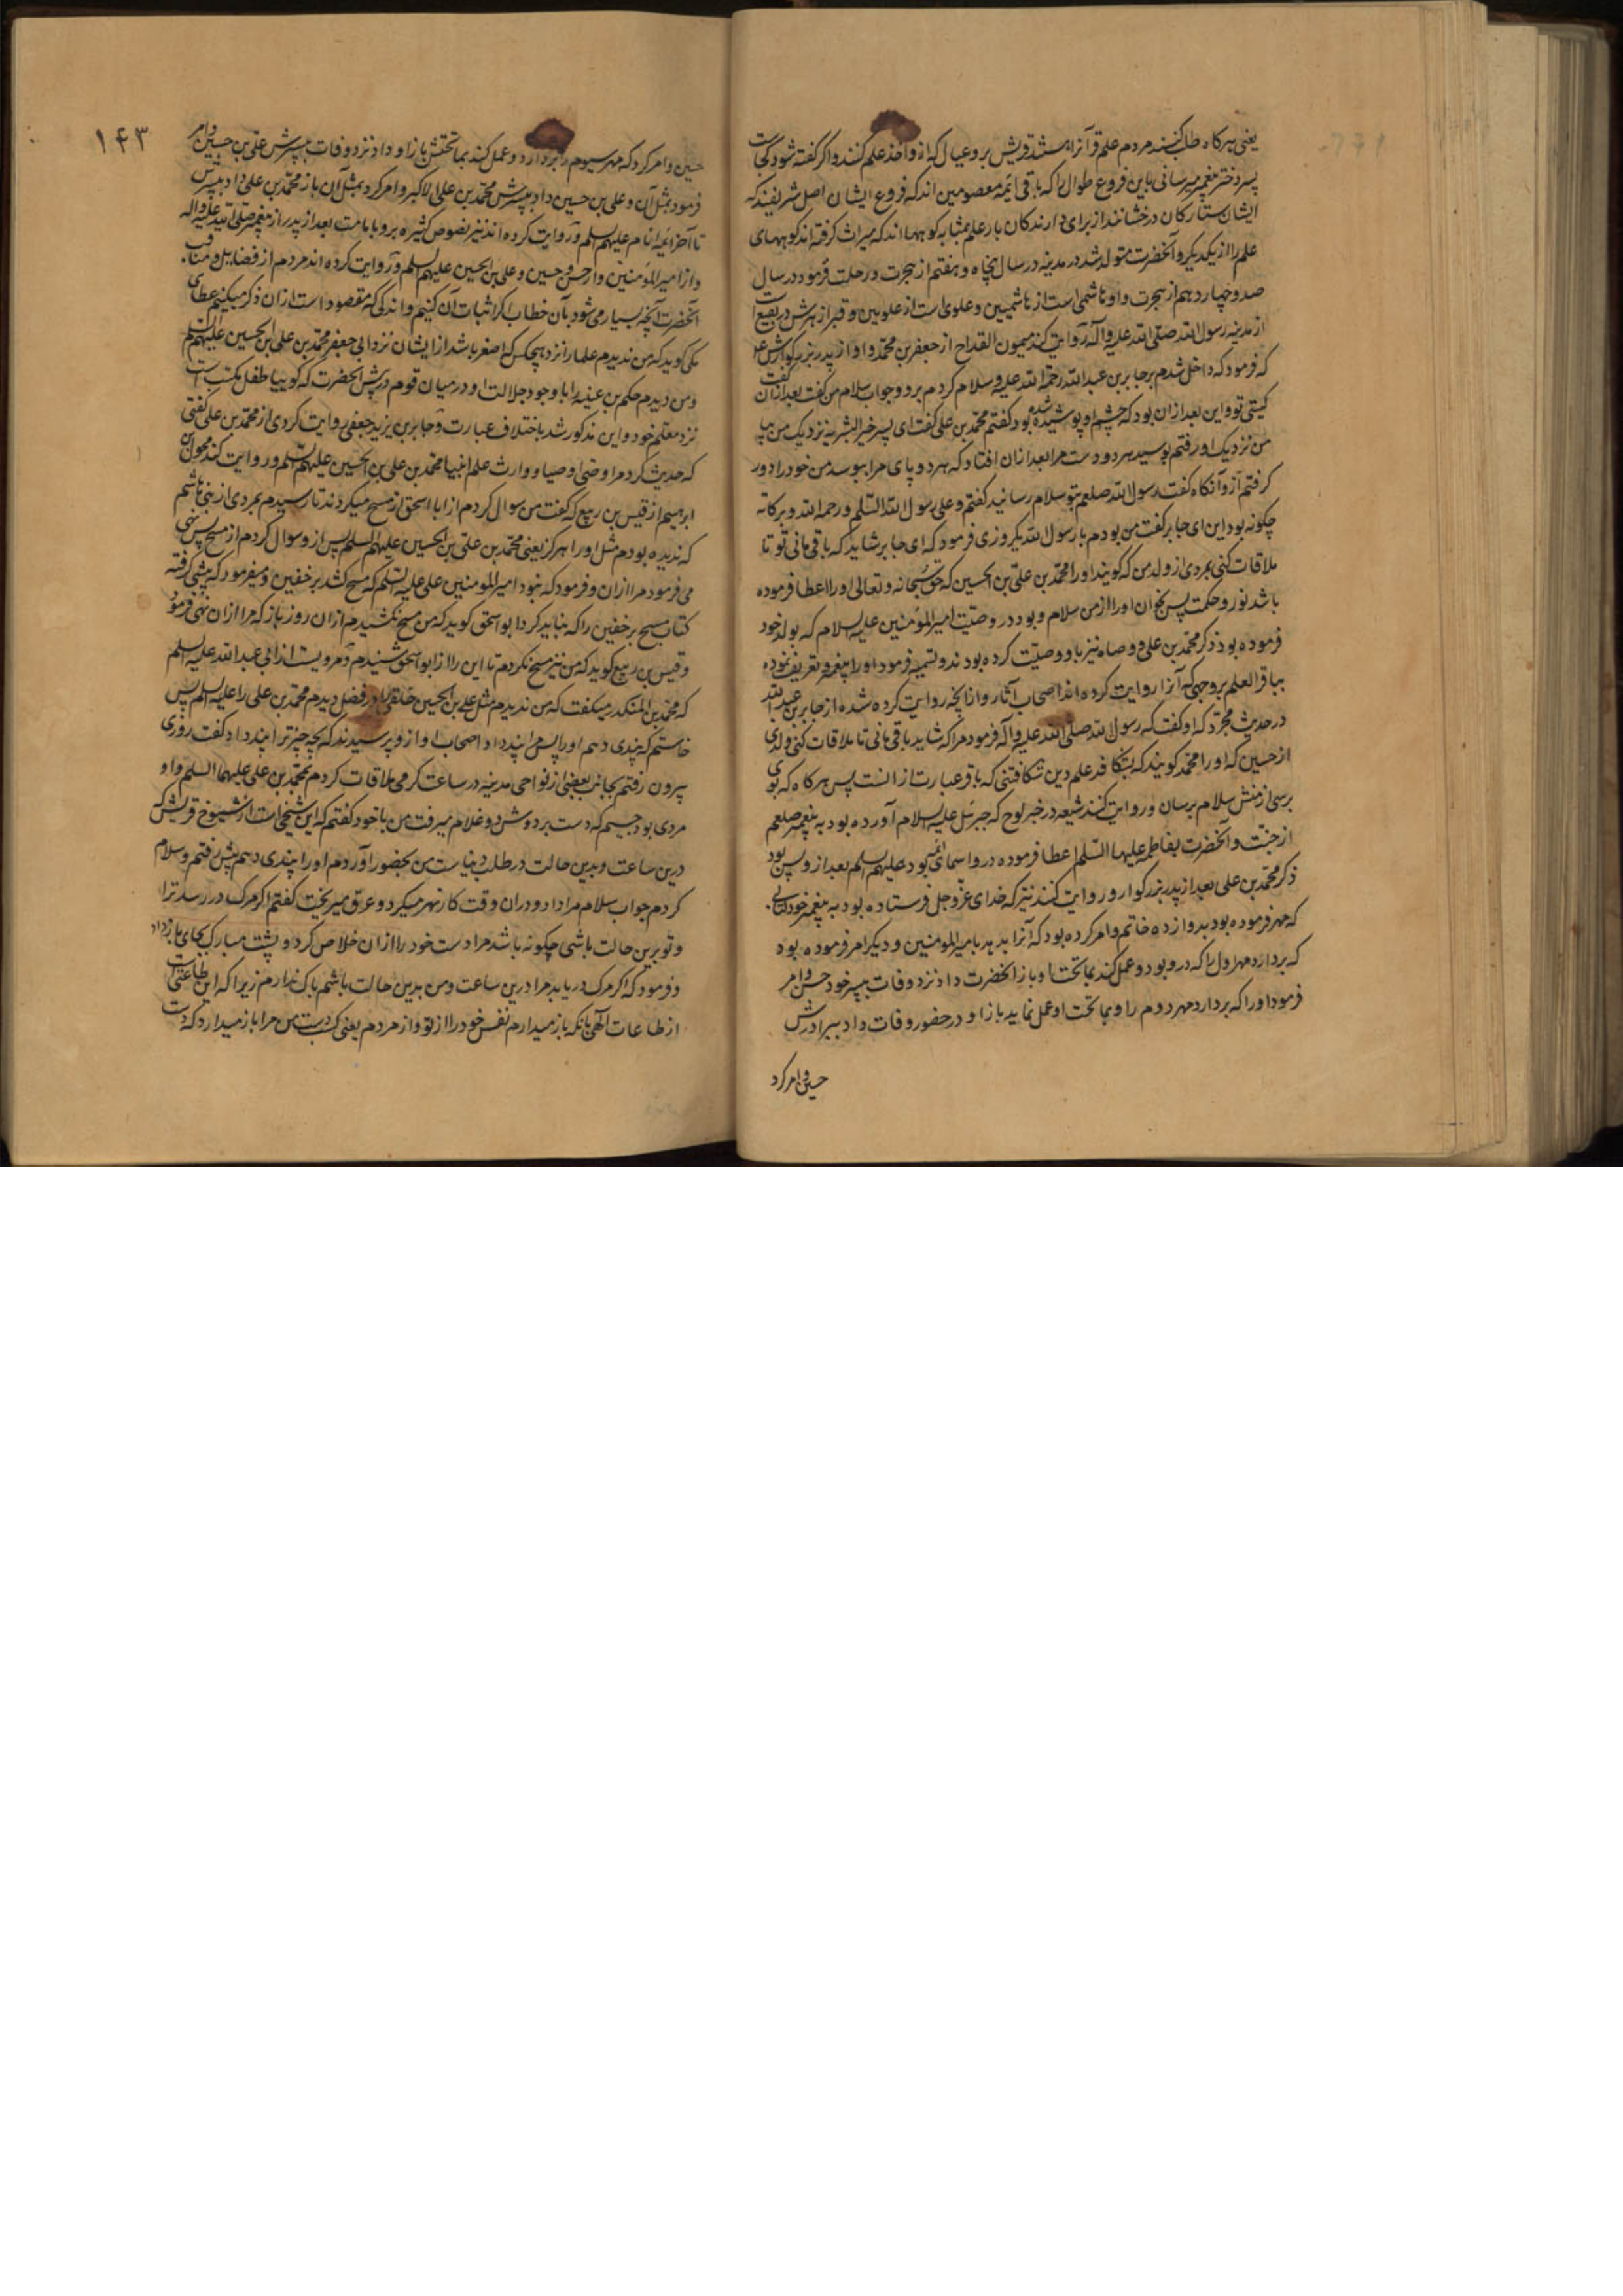 یعنی هرکاه طلب کنند مردم علم قرآنرا باشند قریش برو عیال که ازو اخذ علم کنند و اکر کفته شود کجاست
پسر دختر پیغمبر میرسانی باین فروع طوال را که باقی ائمه معصومین اند که فروع ایشان اصل شریفند که
ایشان ستارکان درخشانند از برای دارندکان بار علم بمثابه کوهها اند که میراث کرفته اند کوههای
علم را از یکدیکر و آنحضرت متولد شد در مدینه در سال پنجاه و هفتم از هجرت و رحلت فرمود در سال
صد و چهاردهم از هجرت و او هاشمی است از هاشمیین و علوی است از علویین و قبر ازهرش در بقیع است
از مدینه رسول الله صلی الله علیه و آله روایت کند میمون القداح از جعفر بن محمد و او از پدر بزرکوارش ع
که فرمود که داخل شدم بر جابر بن عبد الله رحمة الله علیه و سلام کردم برو و جواب سلام من کفت بعد ازان کفت
کیستی تو و این بعد ازان بود که چشم او پوشیده شده بود کفتم محمد بن علی کفت ای پسر خیر البشر بیه نزدیک من بیا
من نزدیک او رفتم بوسید هر دو دست مرا بعد ازان افتاد که هر دو پای مرا ببوسد من خود را دور
کرفتم ازو آنکاه کفت رسول الله صلعم بتو سلام رسانید کفتم و علی رسول الله السلم و رحمه الله و برکاته
چکونه بود این ای جابر کفت من بودم با رسول الله یکروزی فرمود که ای جابر شاید که باقی مانی تو تا
ملاقات کنی بمردی از ولد من که کویند او را محمد بن علی بن الحسین که حق سبحانه و تعالی او را اعطا فرموده
باشد نور و حکمت پس بخوان او را از من سلام و بود در وصیت امیر المؤمنین علیه السلام که بولد خود
فرموده بود ذکر محمد بن علی و وصاه نیز باو وصیت کرده بودند و تسمیه فرمود او را پیغمبر و تعریف نموده
بباقر العلم بر وجهی که آنرا روایت کرده اند اصحاب آثار و از آنچه روایت کرده شده از جابر بن عبد الله
در حدیث مجرد که او کفت که رسول الله صلی الله علیه و آله فرمود مرا که شاید باقی مانی تا ملاقات کنی ولدی
از حسین که او را محمد کویند که بشکافد علم دین شکافتنی که باقر عبارت از انست پس هرکاه که بوی
برسی از منش سلام برسان و روایت کنند شیعه در خبر لوح که جبرئیل علیه السلام آورده بود به پیغمبر صلعم
از جنت و آنحضرت بفاطمه علیها السلم اعطا فرموده درو اسمای ائمه بود علیهم السلم بعد ازو پس بود
ذکر محمد بن علی بعد از پدر بزرکوار و روایت کنند نیز که خدای عز و جل فرستاده بود به پیغمبر خود کتابی
که مهر فرموده بود بدوازده خاتم و امر کرده بود که آنرا بدهد بامیر المومنین و دیکر امر فرموده بود
که بردارد مهر اول را که درو بود و عمل کند بما تحت او باز آنحضرت داد نزد وفات بپسر خود حسن و امر
فرمود او را که بردارد مهر دوم را و بما تحت او عمل نماید باز او در حضور وفات داد ببرادرش
حسین و امر کرد
۱۴۳
حسین و امر کرد که مهر سیوم را بردارد و عمل کند بما تحتش باز او داد نزد وفات بپسرش علی بن حسین و امر
فرمود بمثل آن و علی بن حسین داد بپسرش محمد بن علی الاکبر و امر کرد بمثل آن باز محمد بن علی داد بپسرش
تا آخر ائمه انام علیهم السلم و روایت کرده اند نیز نصوص کثیره برو بامامت بعد از پدر از پیغمبر صلی الله علیه و اله
و از امیر المؤمنین و از حسن و حسین و علی بن الحسین علیهم السلم و روایت کرده اند مردم از فضایل و مناقب
آنحضرت آنچه بسیار می شود بآن خطاب اکر اثبات آن کنیم و اندکی که مقصود است ازان ذکر میکنیم عطای
مکی کوید که من ندیدم علما را نزد هیچکس که اصغر باشد از ایشان نزد ابی جعفر محمد بن علی ابن الحسین علیهم السلم
و من دیدم حکم بن عیینه را با وجود جلالت او در میان قوم در پیش آنحضرت که کوییا طفل مکتب است
نزد معلم خود و این مذکور شد باختلاف عبارت و جابر بن یزید جعفی روایت کردی از محمد بن علی کفتی
که حدیث کرد مرا وصی اوصیا و وارث علم انبیا محمد بن علی بن الحسین علیهم السلم و روایت کند محول بن
ابرهیم از قیس بن ربیع که کفت من سوال کردم از ابا اسحق از مسح میکردند تا رسیدم بمردی از بنی هاشم
که ندیده بودم مثل او را هرکز یعنی محمد بن علی بن الحسین علیهم السلم پس ازو سوال کردم از مسح پس نهی
می فرمود مرا ازان و فرمود که نبود امیر المومنین علی علیه السلم که مسح کشد بر خفین و میفرمود که پیشی کرفته
کتاب مسح بر خفین را که نباید کرد ابو اسحق کوید که من مسح نکشیدم ازان روز باز که مرا ازان نهی فرمود
و قیس بن ربیع کوید که من نیز مسح نکردم تا این را از ابو اسحق شنیدم و مرویست از ابی عبد الله علیه السلم
که محمد بن المنکدر میکفت که من ندیدم مثل علی بن الحسین خلقی را در فضل دیدم محمد بن علی را علیه السلم پس
خواستم که پندی دهم او را پس مرا پند داد اصحاب او ازو پرسیدند که بچه چیز ترا پند داد کفت روزی
بیرون رفتم بجانب بعضی از نواحی مدینه در ساعت کرمی ملاقات کردم بمحمد بن علی علیهما السلم و او
مردی بود جسیم که دست بر دوش دو غلام میرفت من با خود کفتم که این شیخی است از شیوخ قریش که
درین ساعت و بدین حالت در طلب دنیاست من بحضور آوردم او را پندی دهم پیش رفتم و سلام
کردم جواب سلام مرا داد و دران وقت کار نهر میکرد و عرق میریخت کفتم اکر مرک در رسد ترا
و تو برین حالت باشی چکونه باشد مرا دست خود را ازان خلاص کرد و پشت مبارک بجای باز داد
و فرمود که اکر مرک دریابد مرا درین ساعت و من بدین حالت باشم باک ندارم زیرا که این طاعتی است
از طاعات الهی بانکه باز میدارم نفس خود را از تو و از مردم یعنی کسب دست من مرا باز میدارد که دست